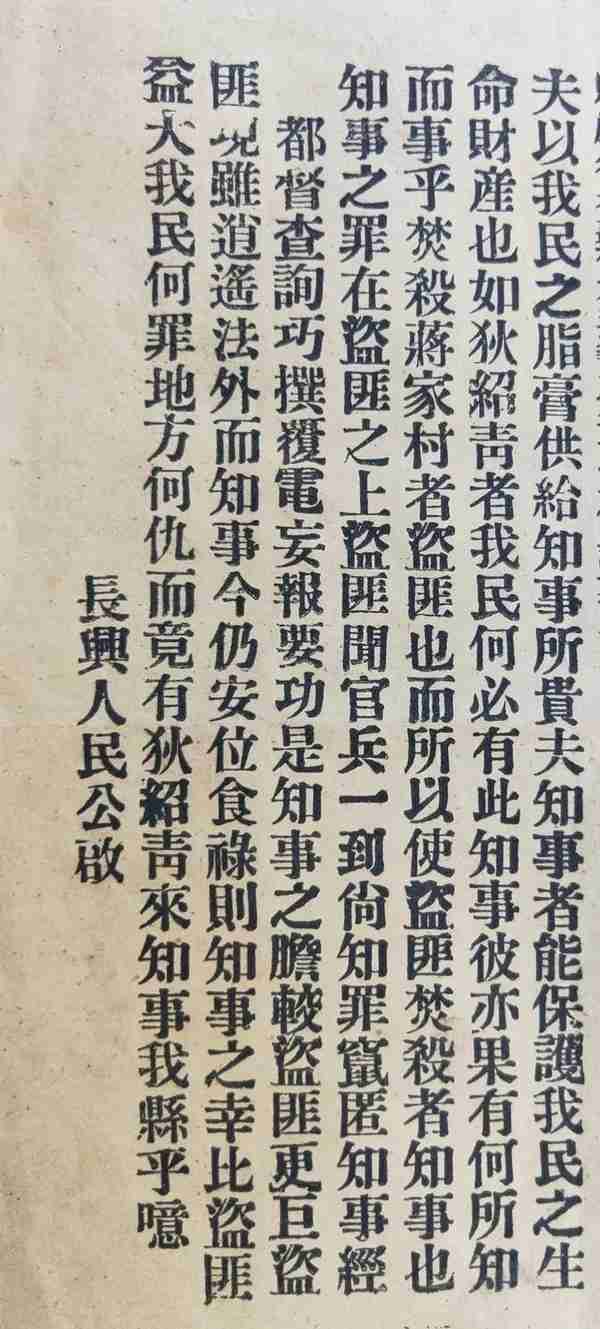 夫以我民之脂膏供給知事所貴夫知事者能保護我民之生
命財産也如狄紹靑者我民何必有此知事彼亦果有何所知
而事乎焚殺蔣家村者盜匪也而所以使盜匪焚殺者知事也
知事之罪在盜匪之上盜匪聞官兵一到尙知罪竄匿知事經
都督查詢巧撰覆電妄報要功是知事之膽較盜匪更巨盜
匪現雖逍遙法外而知事今仍安位食祿則知事之幸比盜匪
益大我民何罪地方何仇而竟有狄紹靑來知事我縣乎噫
長興人民公啟